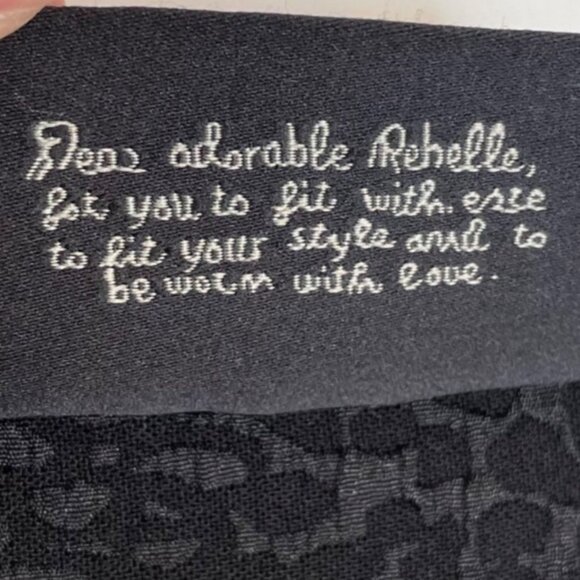 Dear adorable Rebelle,
for you to fit with ease
to fit your style and to
be worn with love.